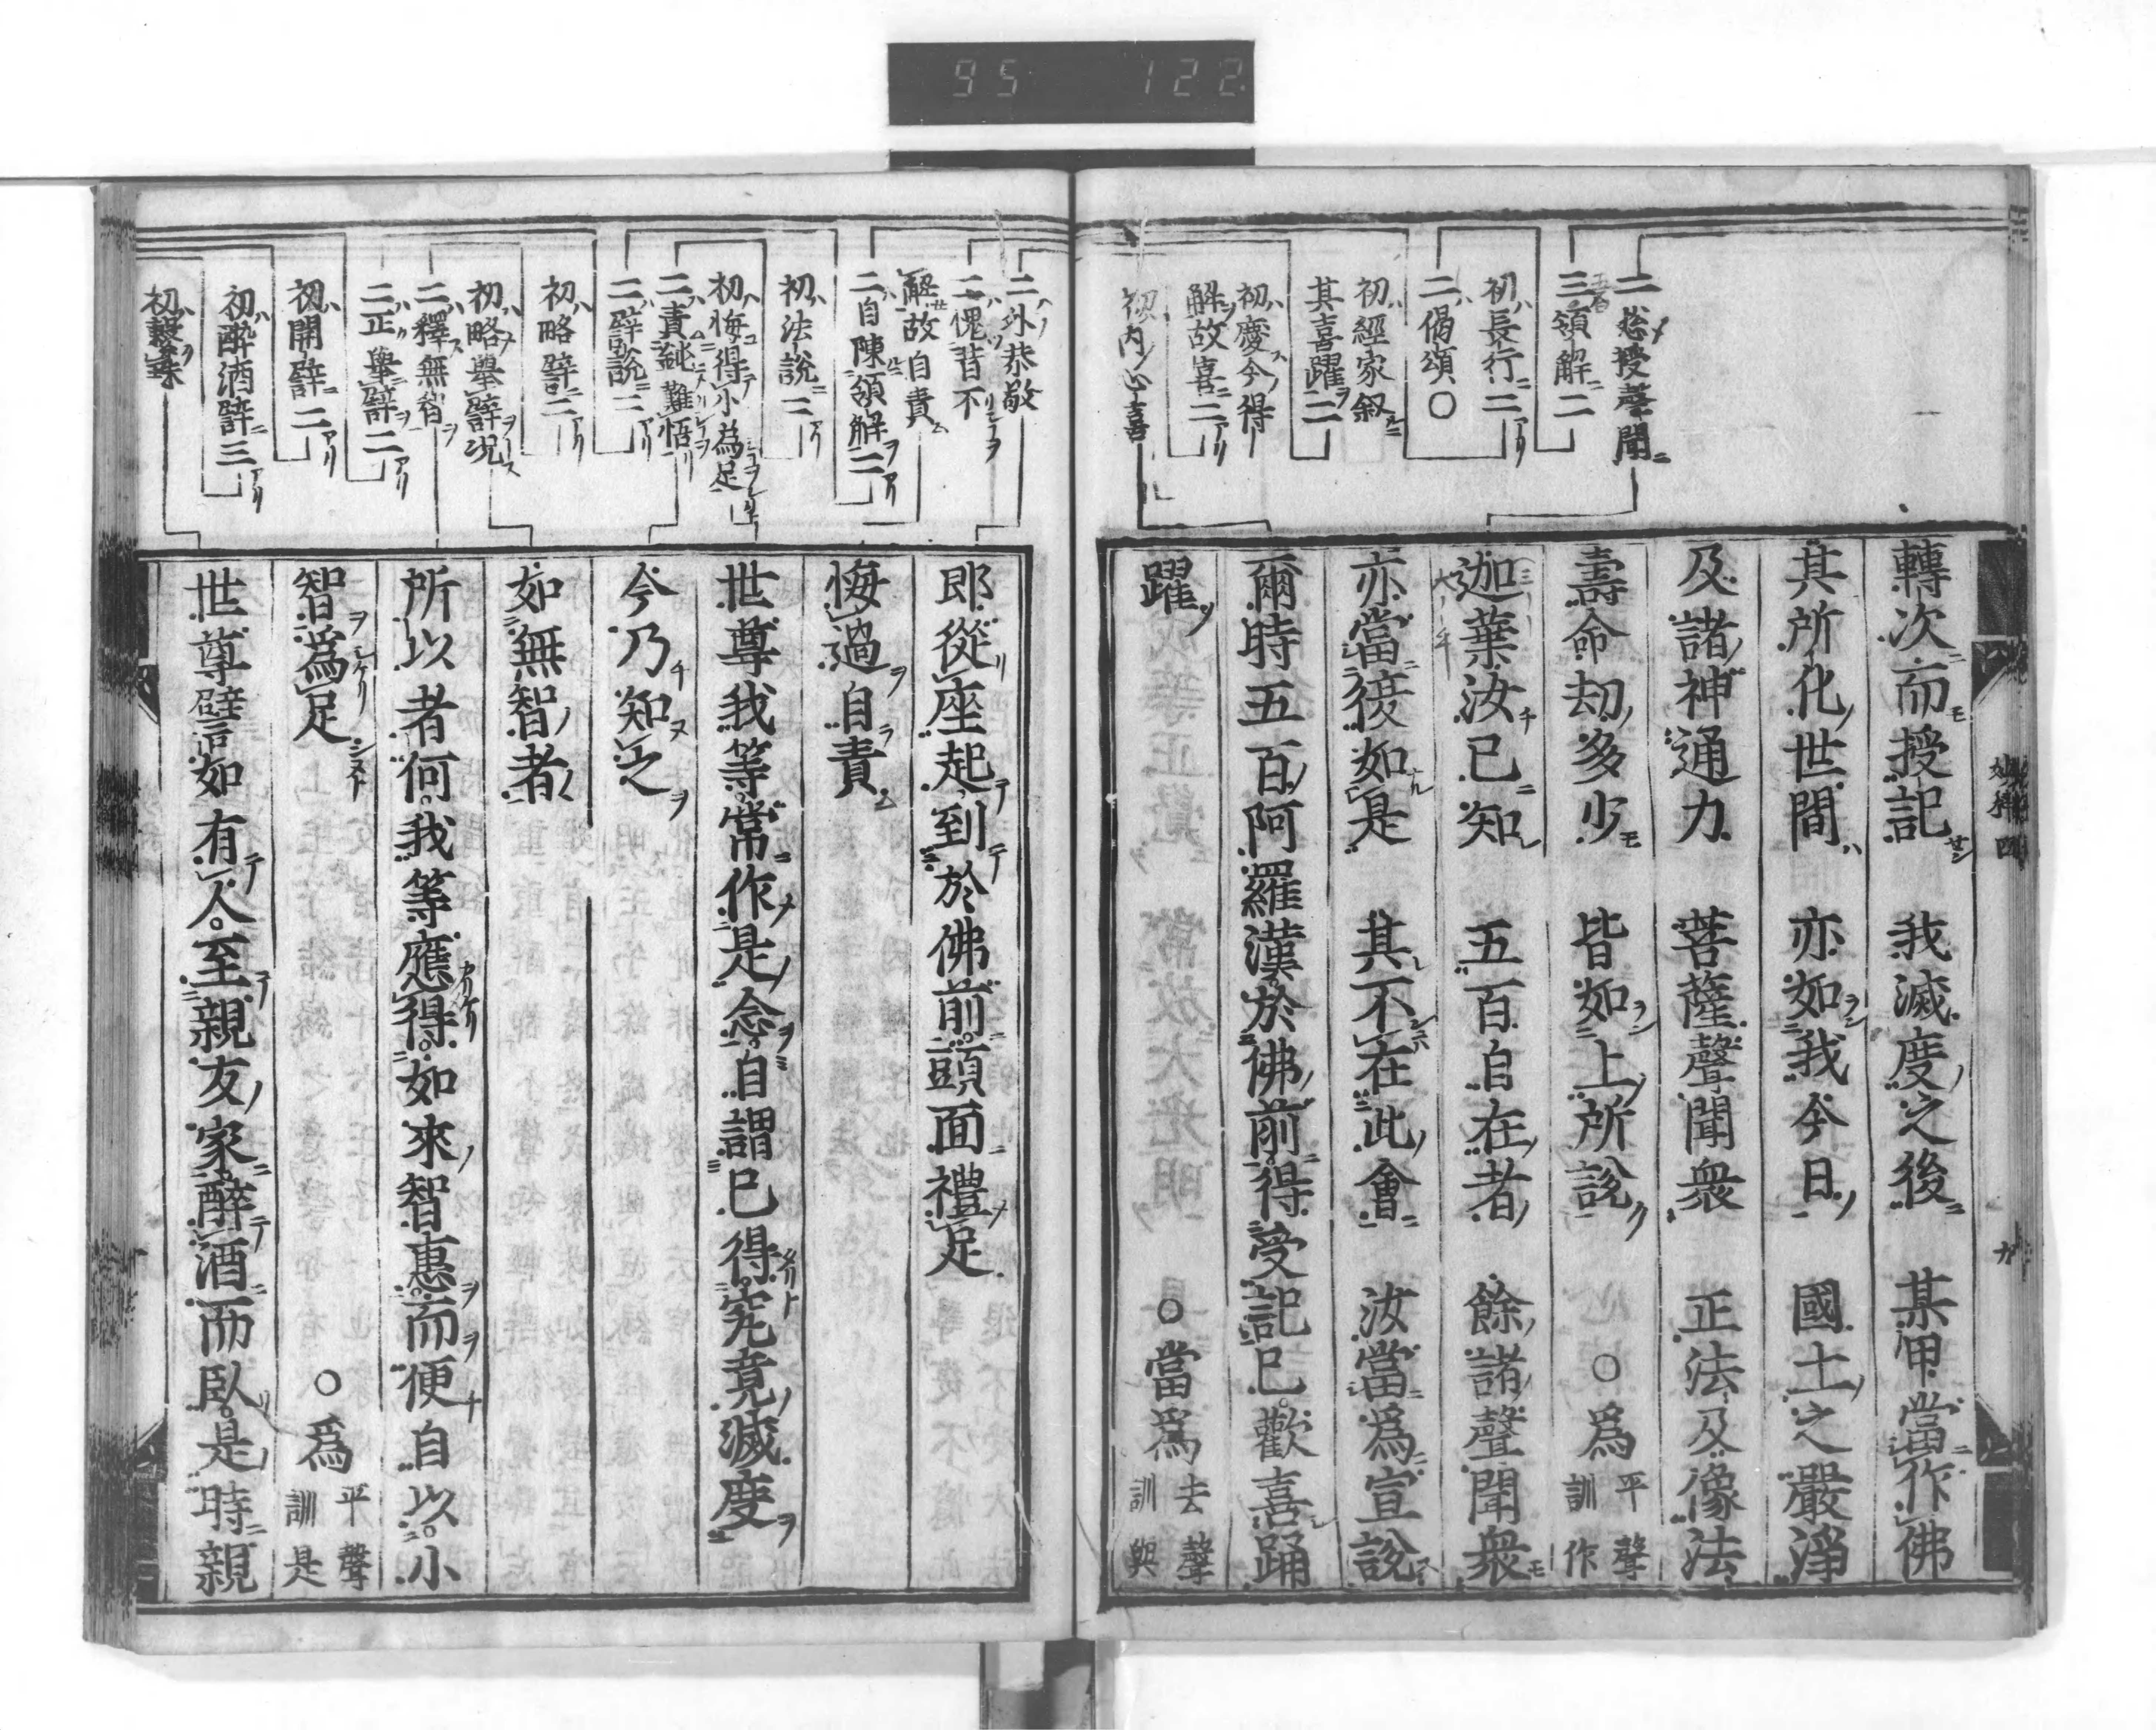 95 122
二總授聲聞
三領解二
初長行二
二偈頌○
初經家叙
其喜躍二
初慶今得
解故喜二
初内心喜
轉次而授記 我滅度之後 某甲當作佛
其所化世間 亦如我今日 國土之嚴淨
及諸神通力 菩薩聲聞衆 正法及像法
壽命劫多少 皆如上所說 ○爲平聲訓作
迦葉汝已知 五百自在者 餘諸聲聞衆
亦當復如是 其不在此會 汝當爲宣說
爾時五百阿羅漢於佛前得受記已歡喜踊
躍 ○當爲去聲訓與
二外恭敬
二愧昔不
解故自責
二自陳領解二
初法說二
初悔得小為足
二責難悟
二譬說二
初略譬二
初略舉譬况
二釋無智
二正舉譬二
初開譬二
初醉酒譬三
初繫珠
即從座起到於佛前頭面禮足
悔過自責
世尊我等常作是念自謂已得究竟滅度
今乃知之
如無智者
所以者何我等應得如來智惠而便自以小
智爲足 ○爲平聲訓是
世尊譬如有人至親友家醉酒而臥是時親